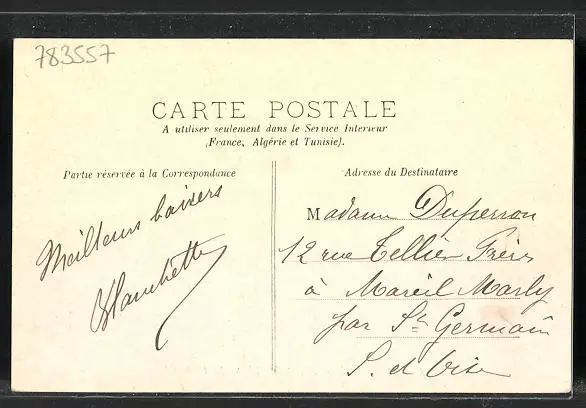 783557
CARTE POSTALE
A utiliser seulement dans le Service Interieur
(France, Algérie et Tunisie).
Partie réservée à la Correspondance
Meilleurs baisers
Blanchette
Adresse du Destinataire
Madame Duperron
12 rue Tellier Frères
à Mareil Marly
par St Germain
S. et Oise